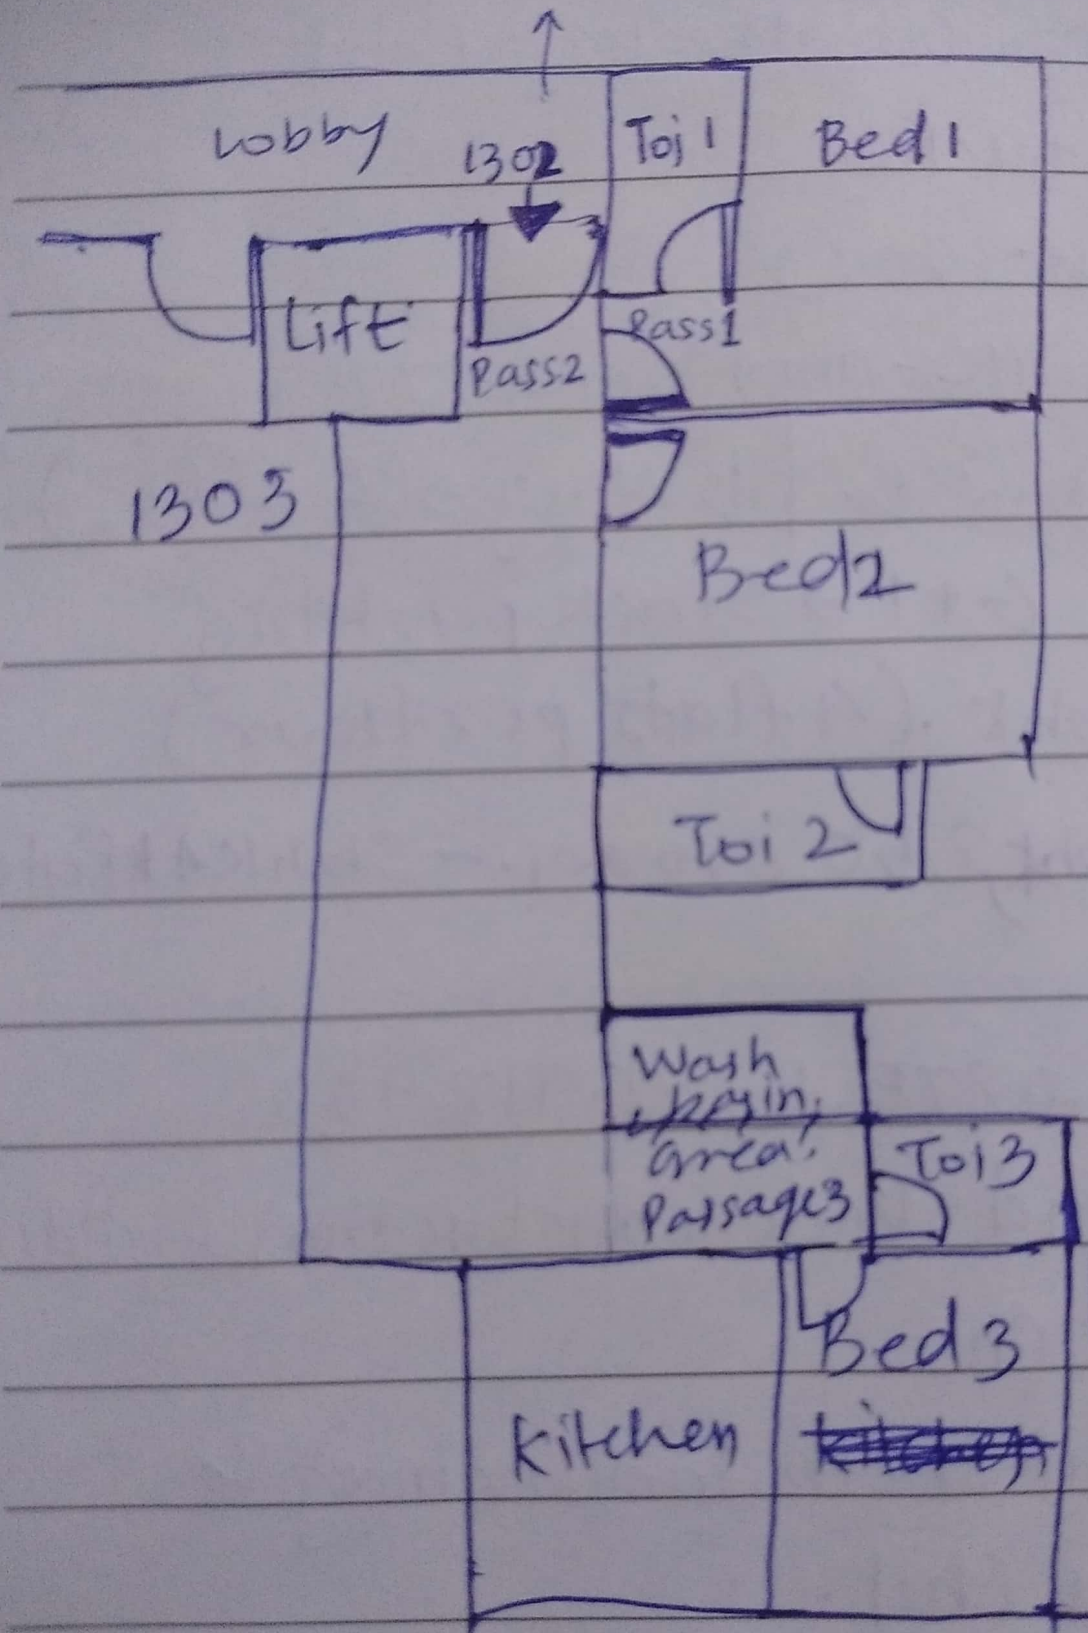 Lobby
1302
Toi 1
Bed 1
Lift
Pass1
Pass2
1303
Bed2
Toi 2
Wash
area.
Passage3
Toi3
Bed 3
Kitchen
Kitchen